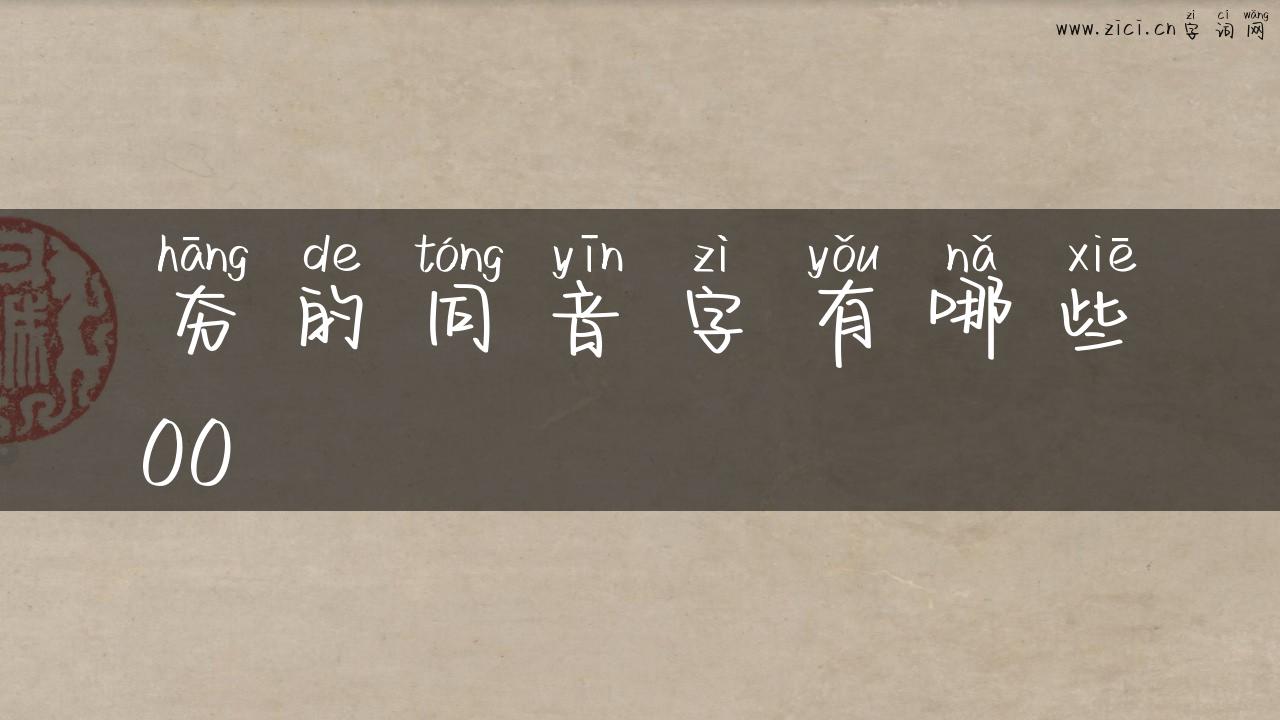 zì cí wǎng
www.zici.cn字词网
hāng de tóng yīn zì yǒu nǎ xiē
夯的同音字有哪些
00